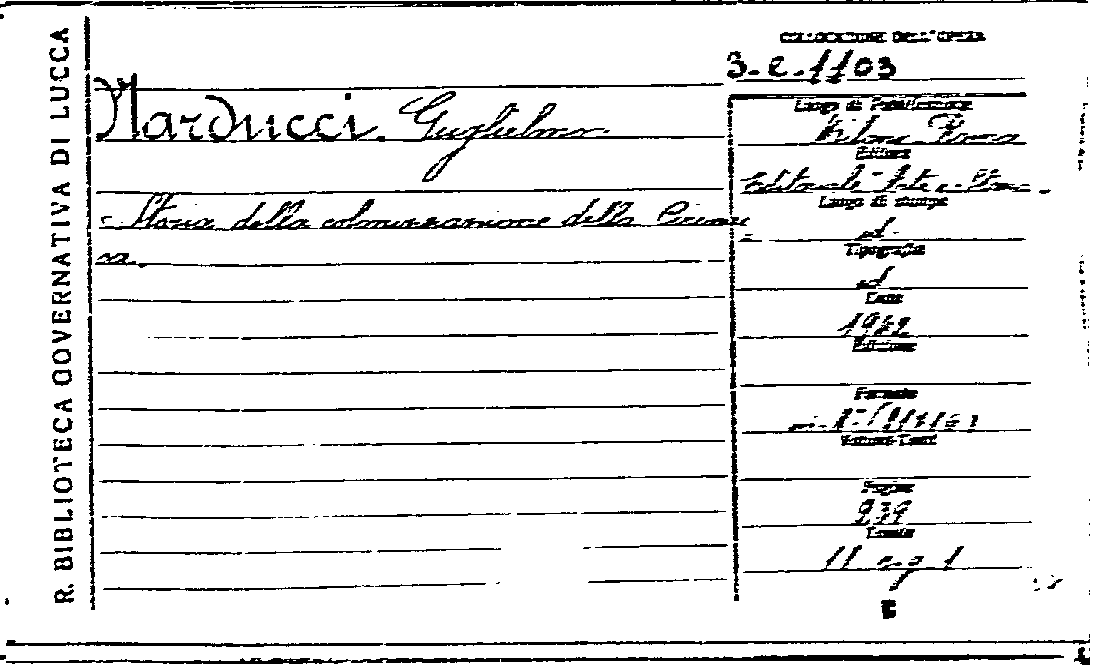 R. BIBLIOTECA GOVERNATIVA DI LUCCA
COLLOCAZIONE DELL'OPERA
3.e.1103
Narducci. Guglielmo.
- Storia della colonizzazione della Cirenai
ca.
Luogo di Pubblicazione
Milano Roma
Editore
Editoriale Arte e Storia.
Luogo di stampa
id.
Tipografia
id
Data
1942
Edizione
Formato
Volume-Tomi
Pagine
239